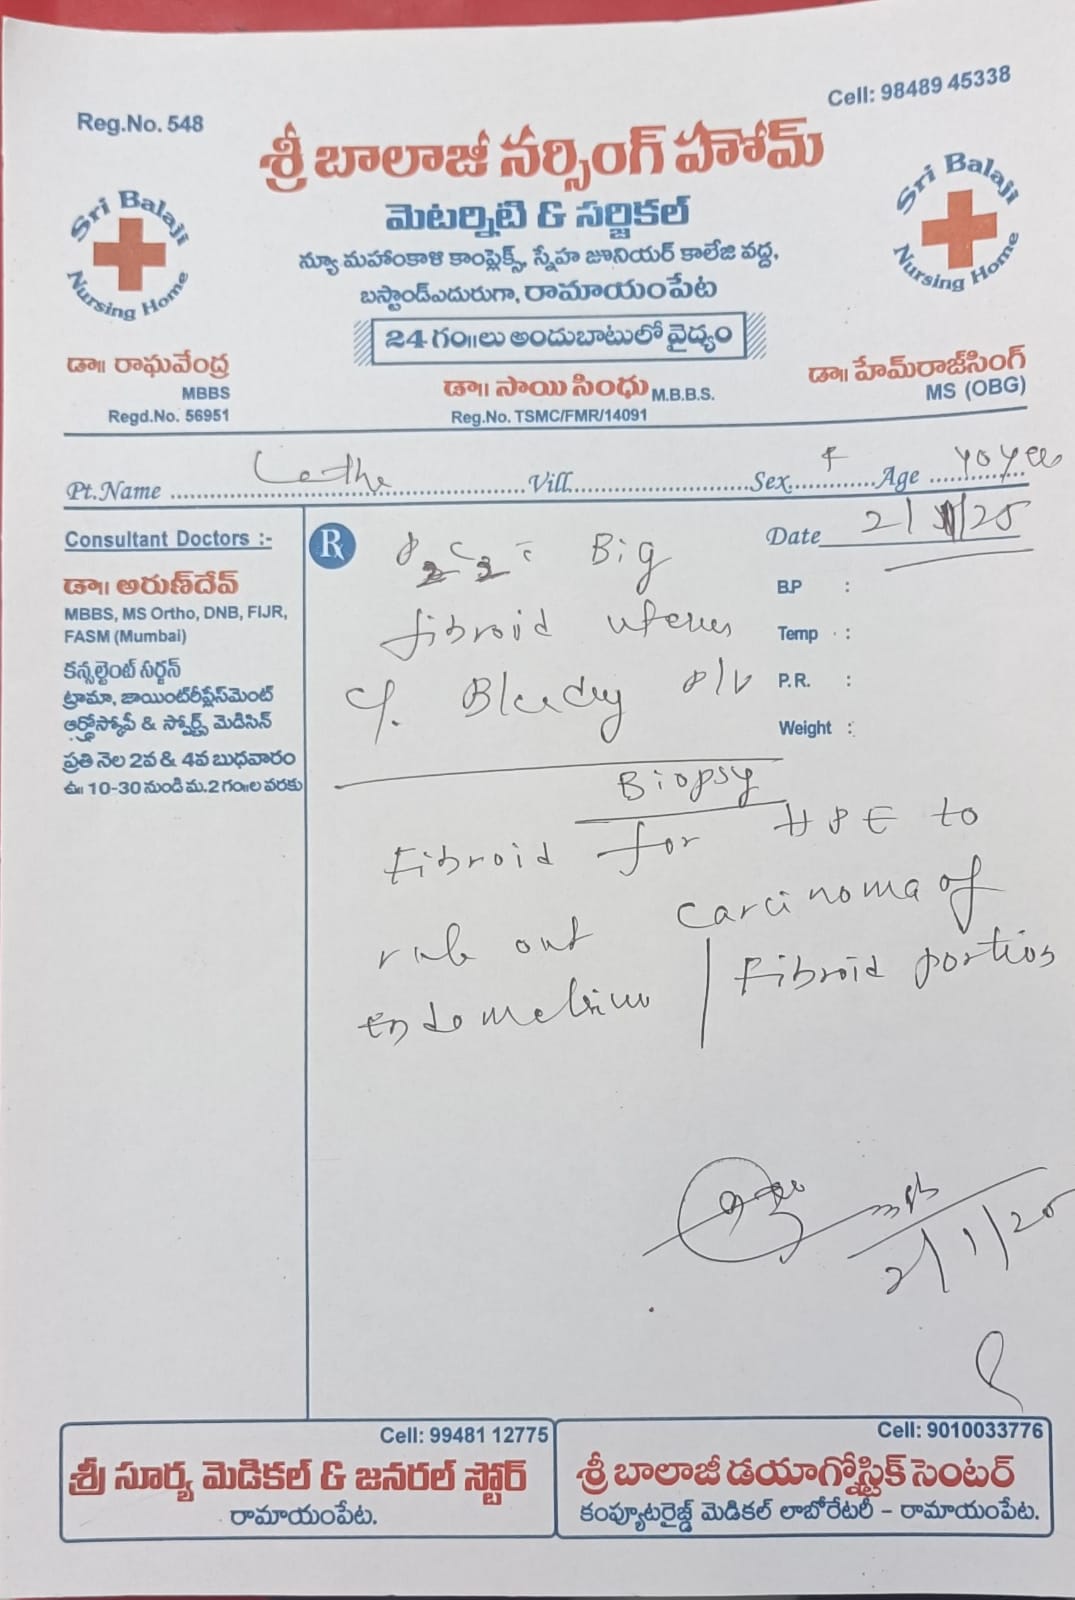 Reg.No. 548
Cell: 98489 45338
శ్రీ బాలాజీ నర్సింగ్ హోమ్
మెటర్నిటి & సర్జికల్
న్యూ మహాంకాళి కాంప్లెక్స్, స్నేహ జూనియర్ కాలేజి వద్ద,
బస్టాండ్ఎదురుగా, రామాయంపేట
24 గం॥లు అందుబాటులో వైద్యం
Sri Balaji Nursing Home
Sri Balaji Nursing Home
డా॥ రాఘవేంద్ర
MBBS
Regd.No. 56951
డా॥ సాయి సింధు M.B.B.S.
Reg.No. TSMC/FMR/14091
డా॥ హేమ్‌రాజ్‌సింగ్
MS (OBG)
Pt.Name Vill Sex F Age
Date 2/ /25
B.P :
Temp :
P.R. :
Weight :
Consultant Doctors :-
డా॥ అరుణ్‌దేవ్
MBBS, MS Ortho, DNB, FIJR,
FASM (Mumbai)
కన్సల్టెంట్ సర్జన్
ట్రామా, జాయింట్‌రీప్లేస్‌మెంట్
ఆర్థ్రోస్కోపీ & స్పోర్ట్స్ మెడిసిన్
ప్రతి నెల 2వ & 4వ బుధవారం
ఉ॥ 10-30 నుండి మ.2 గం॥ల వరకు
Rx
Big
fibroid uterus
Bleeding P/V
Biopsy
Fibroid for HPE to
rule out carcinoma of
endometrium / Fibroid portion
2/1/25
Cell: 99481 12775
శ్రీ సూర్య మెడికల్ & జనరల్ స్టోర్
రామాయంపేట.
Cell: 9010033776
శ్రీ బాలాజీ డయాగ్నోస్టిక్ సెంటర్
కంప్యూటరైజ్డ్ మెడికల్ లాబోరేటరీ - రామాయంపేట.